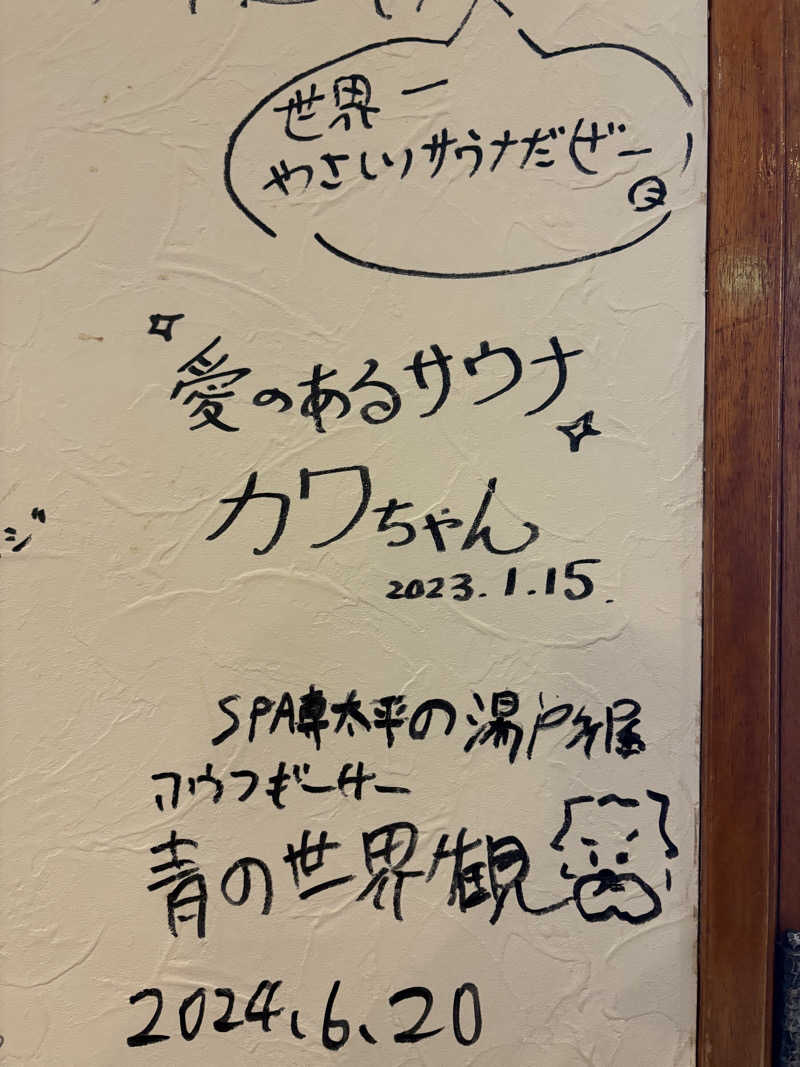 世界一
やさしいサウナだぜー
愛のあるサウナ
カワちゃん
2023.1.15.
SPA専太平の湯
アウフギーサー
青の世界観
2024.6.20